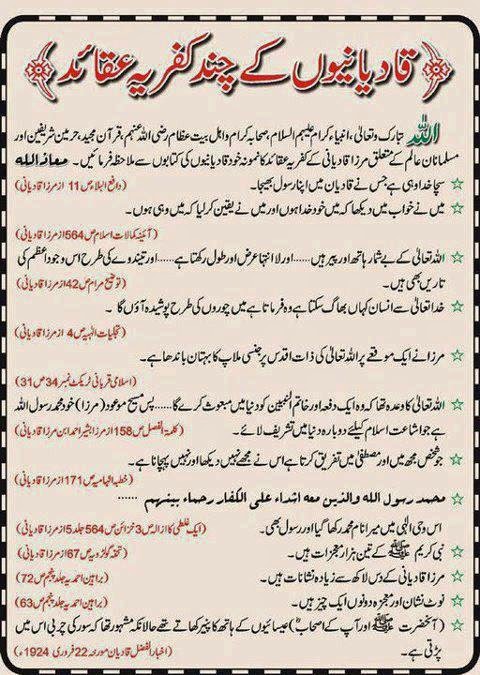 قادیانیوں کے چند کفریہ عقائد
اللہ تبارک وتعالیٰ، انبیاء کرام علیہم السلام، صحابہ کرام و اہل بیت عظام رضی اللہ عنہم، قرآن مجید، حرمین شریفین اور
مسلمانان عالم کے متعلق مرزا قادیانی کے کفریہ عقائد کا نمونہ خود قادیانیوں کی کتابوں سے ملاحظہ فرمائیں۔ معاذ اللہ
☆ سچا خدا وہی ہے جس نے قادیان میں اپنا رسول بھیجا۔ (دافع البلاء ص 11 از مرزا قادیانی)
☆ میں نے خواب میں دیکھا کہ میں خود خدا ہوں اور میں نے یقین کر لیا کہ میں وہی ہوں۔
(آئینہ کمالات اسلام ص 564 از مرزا قادیانی)
☆ اللہ تعالیٰ کے بے شمار ہاتھ اور پیر ہیں ...... اور لا انتہا عرض اور طول رکھتا ہے ...... اور تیندوے کی طرح اس وجود اعظم کی
تاریں بھی ہیں۔ (توضیح مرام ص 42 از مرزا قادیانی)
☆ خدا تعالیٰ سے انسان کہاں بھاگ سکتا ہے وہ فرماتا ہے میں چوروں کی طرح پوشیدہ آؤں گا۔
(تجلیات الٰہیہ ص 4 از مرزا قادیانی)
☆ مرزا نے ایک موقعے پر اللہ تعالیٰ کی ذات اقدس پر جنسی ملاپ کا بہتان باندھا ہے۔
(اسلامی قربانی ٹریکٹ نمبر 34 ص 31)
☆ اللہ تعالیٰ کا وعدہ تھا کہ وہ ایک دفعہ اور خاتم النبیین کو دنیا میں مبعوث کرے گا ...... پس مسیح موعود (مرزا) خود محمد رسول اللہ
ہے جو اشاعت اسلام کیلئے دوبارہ دنیا میں تشریف لائے۔ (کلمۃ الفصل ص 158 از مرزا بشیر احمد ابن مرزا قادیانی)
☆ جو شخص مجھ میں اور مصطفیٰ میں تفریق کرتا ہے اس نے مجھے نہیں دیکھا اور نہیں پہچانا ہے۔
(خطبہ الہامیہ ص 171 از مرزا قادیانی)
☆ محمد رسول الله والذين معه اشداء على الكفار رحماء بينهم ......
اس وحی الٰہی میں میرا نام محمد رکھا گیا اور رسول بھی۔ (ایک غلطی کا ازالہ ص 3 خزائن ص 564 جلد 5 از مرزا قادیانی)
☆ نبی کریم ﷺ کے تین ہزار معجزات ہیں۔ (تحفہ گولڑویہ ص 67 از مرزا قادیانی)
☆ مرزا قادیانی کے دس لاکھ سے زیادہ نشانات ہے۔ (براہین احمدیہ جلد پنجم ص 72)
☆ نوٹ نشان اور معجزہ دونوں ایک چیز ہیں۔ (براہین احمدیہ جلد پنجم ص 63)
☆ (آنحضرت ﷺ اور آپ کے اصحابؓ) عیسائیوں کے ہاتھ کا پنیر کھاتے تھے حالانکہ مشہور تھا کہ سور کی چربی اس میں
پڑتی ہے۔ (اخبار الفضل قادیان مورخہ 22 فروری 1924ء)